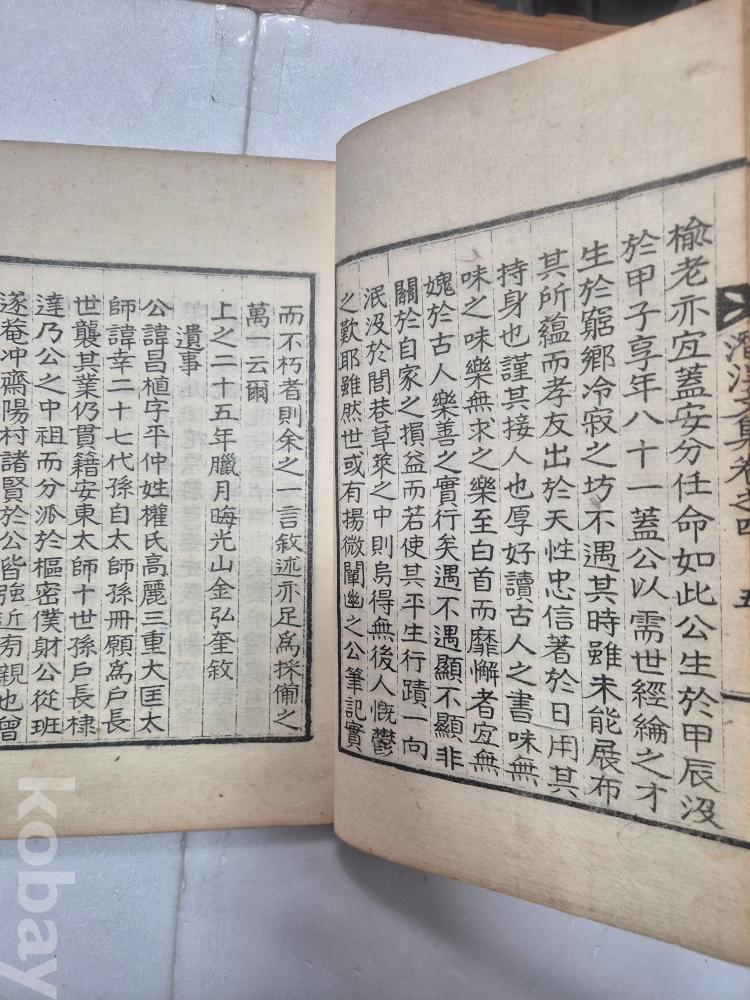 榆老亦宜蓋安分任命如此公生於甲辰沒
於甲子享年八十一蓋公以需世經綸之才
生於窮鄉冷寂之坊不遇其時雖未能展布
其所蘊而孝友出於天性忠信著於日用其
持身也謹其接人也厚好讀古人之書味無
味之味樂無求之樂至白首而靡懈者宜無
媿於古人樂善之實行矣遇不遇顯不顯非
關於自家之損益而若使其平生行蹟一向
泯沒於閭巷草萊之中則烏得無後人慨鬱
之歎耶雖然世或有揚微闡幽之公筆記實
而不朽者則余之一言敘述亦足爲採備之
萬一云爾
上之二十五年臘月晦光山金弘奎敘
遺事
公諱昌植字平仲姓權氏高麗三重大匡太
師諱幸二十七代孫自太師孫冊願爲戶長
世襲其業仍貫籍安東太師十世孫戶長棣
達乃公之中祖而分派於樞密僕射公從班
遂菴冲齋陽村諸賢於公皆强近旁親也曾
文集卷之四 五
kobay